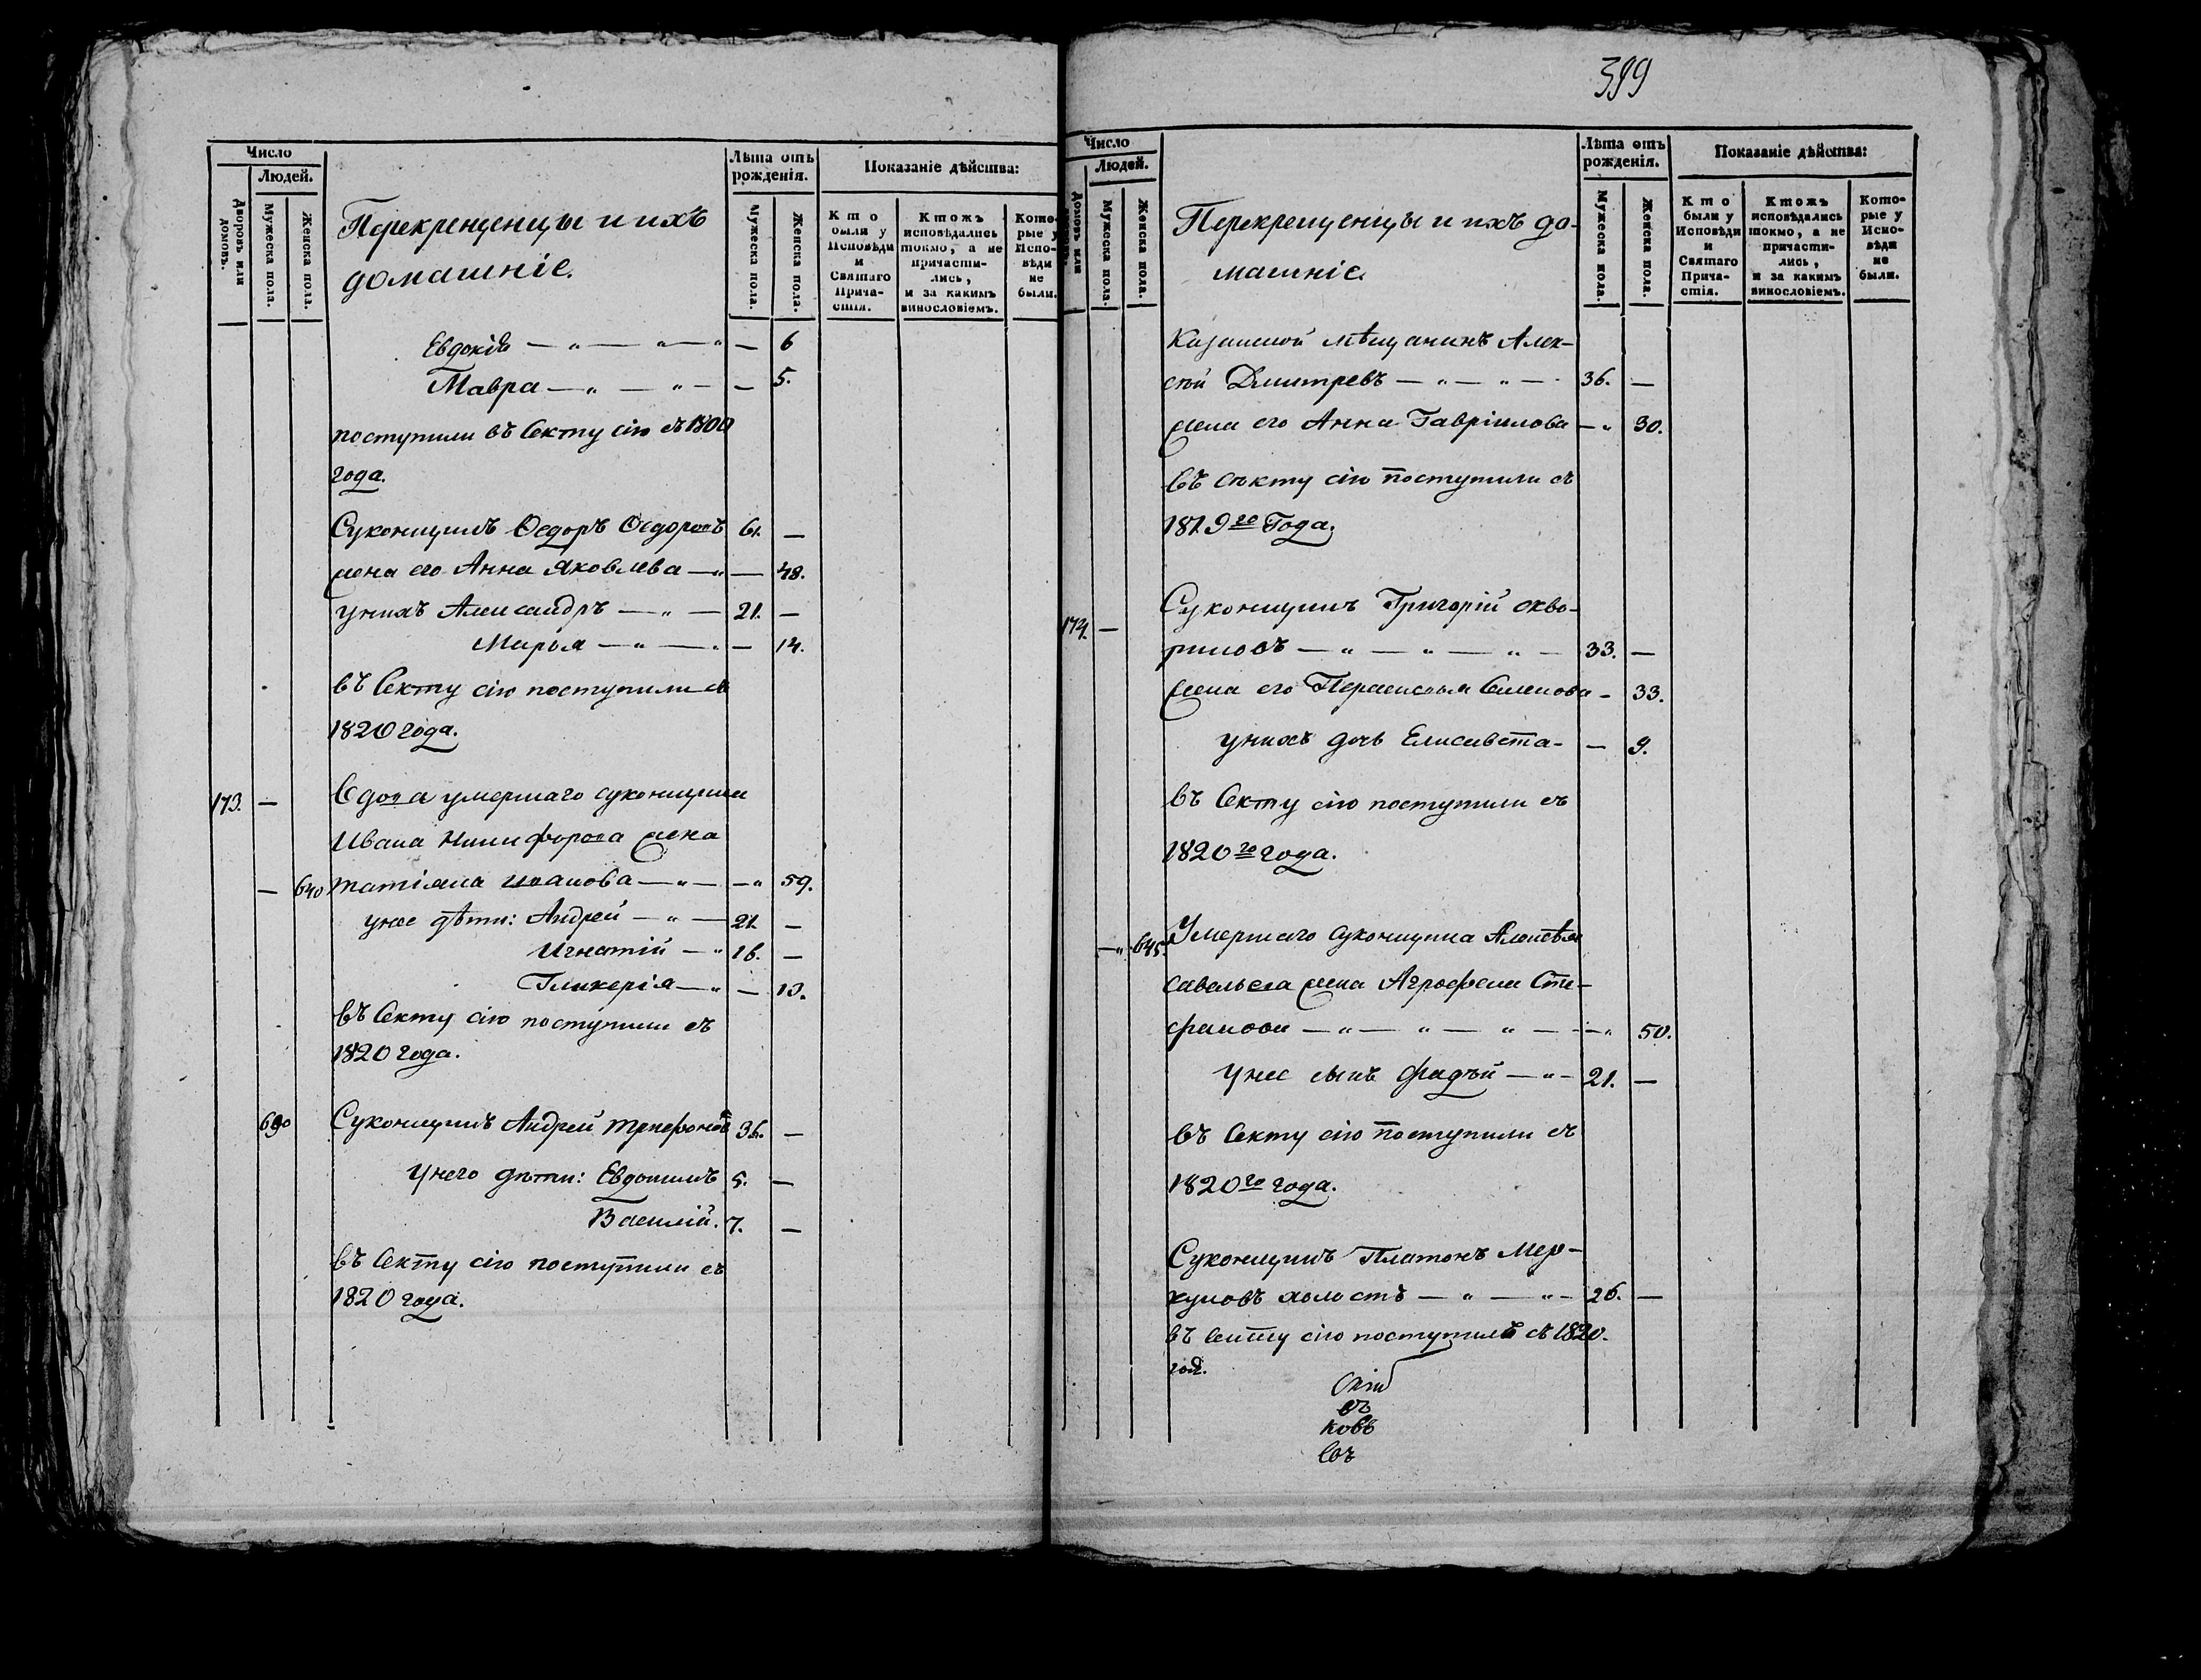 399
Число
Людей.
Дворовъ или домовъ.
Мужеска пола.
Женска пола.
Перекрещенцы и ихъ
домашніе.
Лѣта отъ рожденія.
Мужеска пола.
Женска пола.
Показаніе дѣйства:
Кто были у Исповѣди и Святаго Прича-стія.
Ктожъ исповѣдались токмо, а не причасти-лись, и за какимъ винословіемъ.
Кото-рые у Испо-вѣди не были.
Евдокія — „ — „ — „ — 6
Мавра — „ — „ — — 5.
поступили въ Секту сію съ 1800
года.
Суконщикъ Ѳедоръ Ѳедоровъ 61. —
жена его Анна Яковлева — „ — 48.
у нихъ Александръ — „ — 21. —
Марья — „ — „ — 14.
въ Секту сію поступили съ
1820 года.
173. — Вдова умершаго суконщика
Ивана Никифорова жена
— 640 татіяна иванова — „ — — „ 59.
у нее дѣти: Андрей — „ — 21. —
Игнатій — „ 16. —
Гликерія — „ — 13.
въ Секту сію поступили съ
1820 года.
690 Суконщикъ Андрей трифоновъ 36. —
У него дѣти: Евдокимъ 5. —
Василій. 7. —
въ Секту сію поступили съ
1820 года.
Число
Людей.
Домовъ или
Мужеска пола.
Женска пола.
Перекрещенцы и ихъ до-
машніе.
Лѣта отъ рожденія.
Мужеска пола.
Женска пола.
Показаніе дѣйства:
Кто были у Исповѣди и Святаго Прича-стія.
Ктожъ исповѣдались токмо, а не причасти-лись, и за какимъ винословіемъ.
Кото-рые у Испо-вѣди не были.
Казанской мѣщанинъ Алек-
сѣй Дмитревъ — „ — „ — 36. —
жена его Анна Гавріилова — „ 30.
въ секту сію поступили съ
1819го Года.
174. — Суконщикъ Григорій скво-
рцовъ — „ — „ — „ — 33. —
жена его Парасковья Семенова — 33.
у нихъ дочь Елисавета — — 9.
въ Секту сію поступили съ
1820го года.
— „ 645. Умершаго суконщика Алексѣя
савельева жена Агрофена Сте-
фанова — „ — „ — „ — — „ 50.
У нее сынъ фадѣй — „ — 21. —
въ Секту сію поступили съ
1820го года.
Суконщикъ Платонъ Мер-
куловъ холостъ — „ — „ — 26. —
въ секту сію поступилъ съ 1820.
год.
въ
ковъ